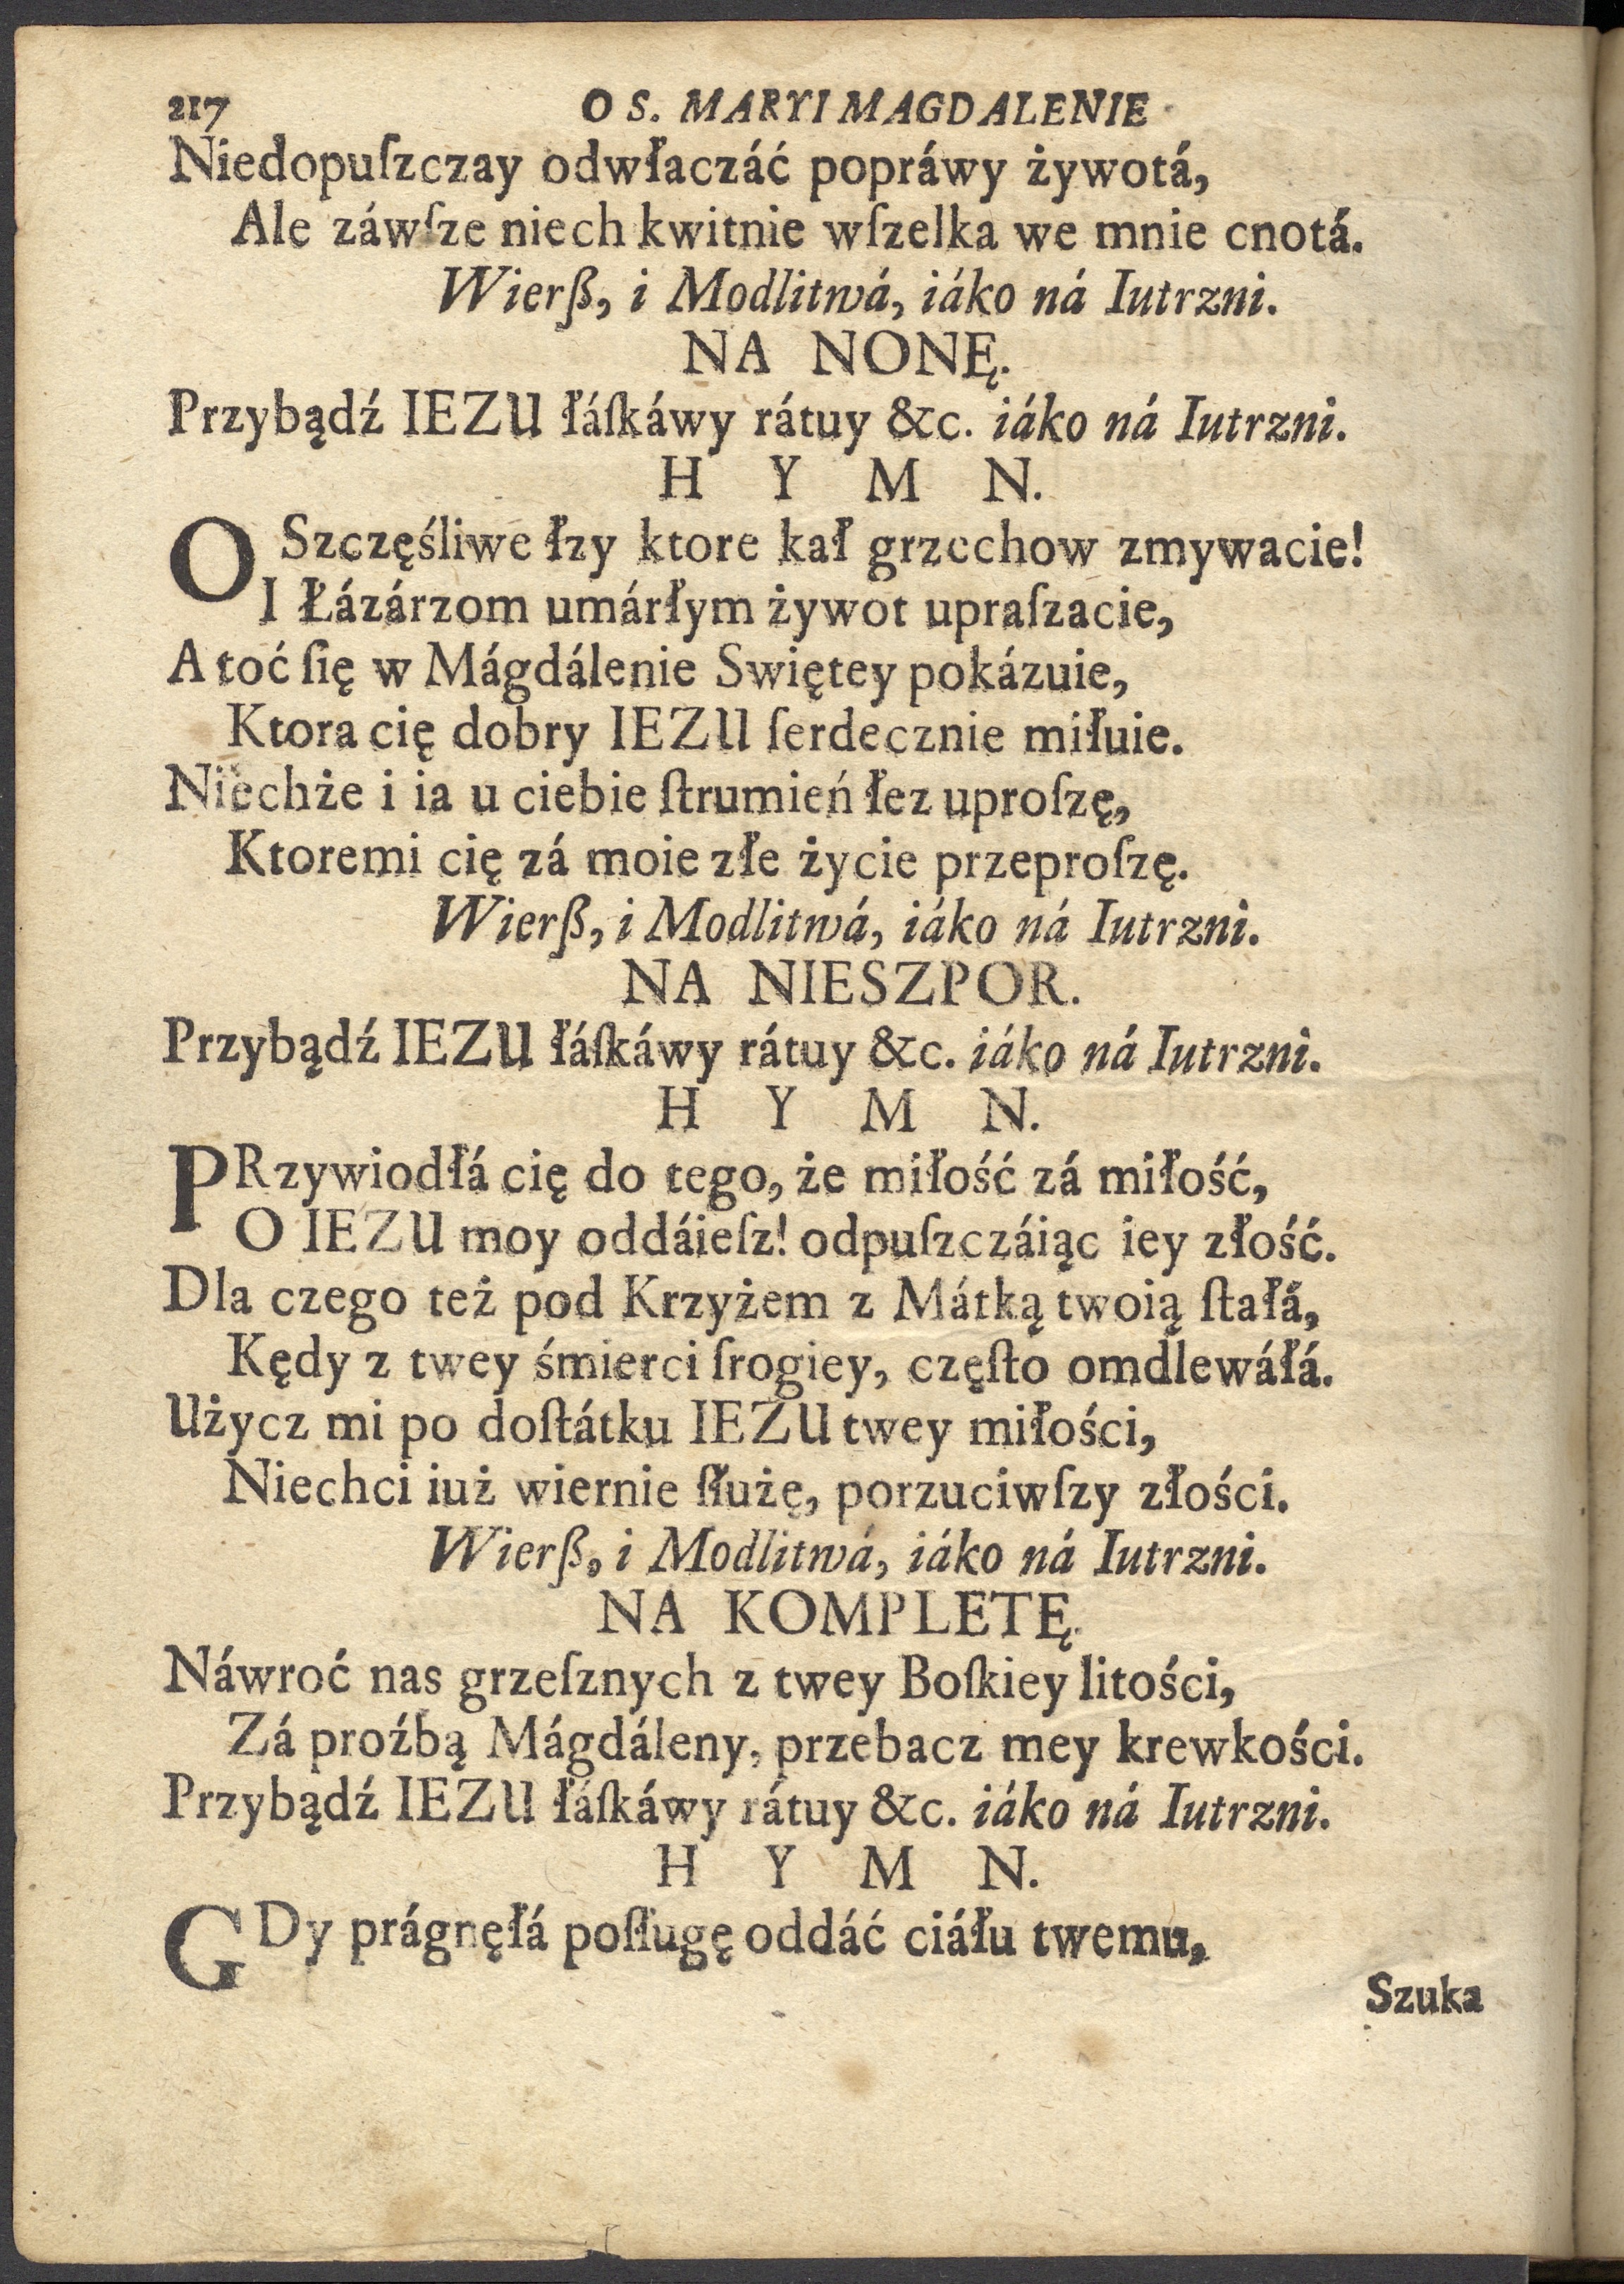 217 O S. MARYI MAGDALENIE
Niedopuſzczay odwłaczáć popráwy żywotá,
Ale záwſze niech kwitnie wſzelka we mnie cnotá.
Wierß, i Modlitwá, iáko ná Iutrzni.
NA NONĘ.
Przybądź IEZU łáſkáwy rátuy &c. iáko ná Iutrzni.
H Y M N.
O Szczęśliwe łzy ktore kał grzechow zmywacie!
I Łázárzom umárłym żywot upraſzacie,
A toć ſię w Mágdálenie Swiętey pokázuie,
Ktora cię dobry IEZU ſerdecznie miłuie.
Niechże i ia u ciebie ſtrumień łez uproſzę,
Ktoremi cię zá moie złe życie przeproſzę.
Wierß, i Modlitwá, iáko ná Iutrzni.
NA NIESZPOR.
Przybądź IEZU łáſkáwy rátuy &c. iáko ná Iutrzni.
H Y M N.
PRzywiodłá cię do tego, że miłość zá miłość,
O IEZU moy oddáieſz! odpuſzczáiąc iey złość.
Dla czego też pod Krzyżem z Mátką twoią ſtałá,
Kędy z twey śmierci ſrogiey, częſto omdlewáłá.
Użycz mi po doſtátku IEZU twey miłości,
Niechci iuż wiernie ſłużę, porzuciwſzy złości.
Wierß, i Modlitwá, iáko ná Iutrzni.
NA KOMPLETĘ.
Náwroć nas grzeſznych z twey Boſkiey litości,
Zá proźbą Mágdáleny, przebacz mey krewkości.
Przybądź IEZU łáſkáwy rátuy &c. iáko ná Iutrzni.
H Y M N.
GDy prágnęłá poſługę oddáć ciáłu twemu,
Szuka